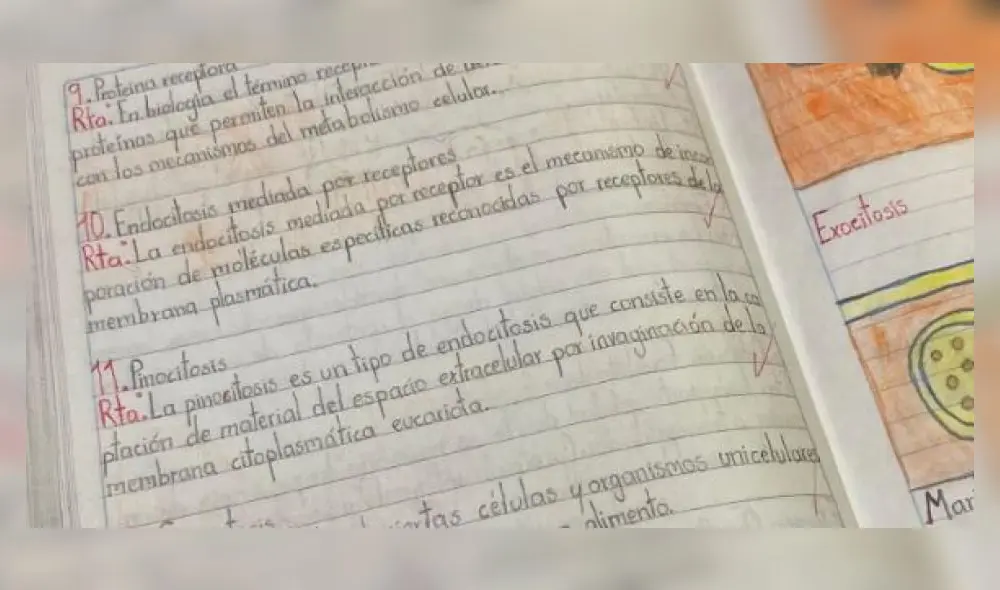 9. Proteina receptora
Rta: En biología el término
proteinas que permiten la interacción de
con los mecanismos del metabolismo celular.
10. Endocitosis mediada por receptores
Rta: La endocitosis mediada por receptor es el mecanismo de incor
poración de moléculas específicas reconocidas por receptores de la
membrana plasmática.
11. Pinocitosis
Rta: La pinocitosis es un tipo de endocitosis que consiste en la ca
ptación de material del espacio extracelular por invaginación de la
membrana citoplasmática eucariota.
células y organismos unicelulares
alimento.
Exocitosis
Mar